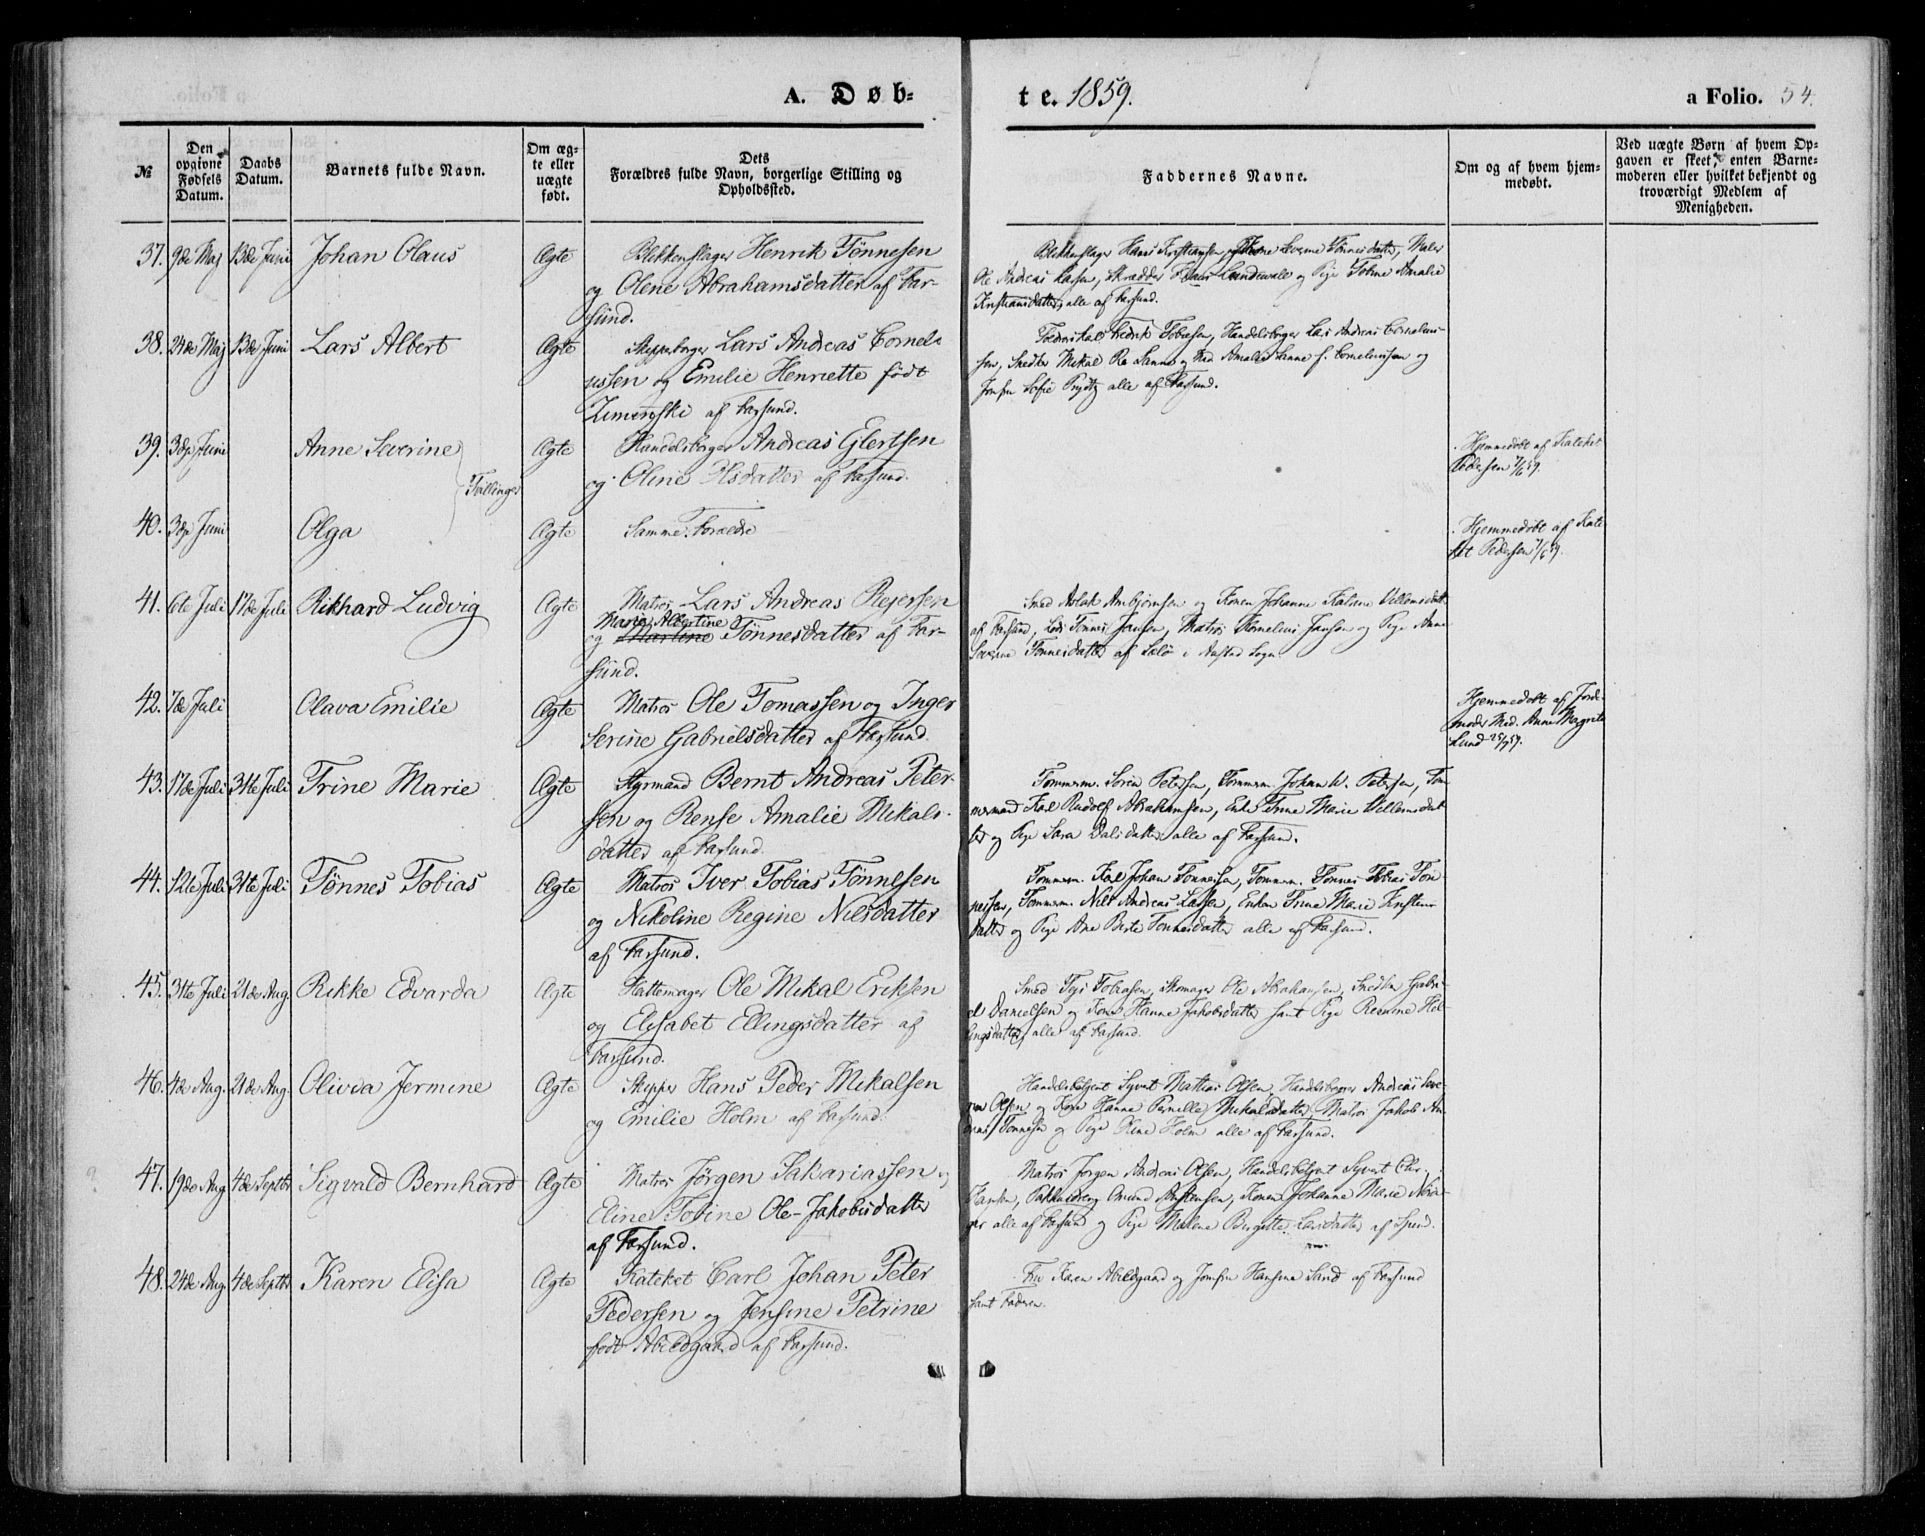 A. Døb-
te. 1859.
a Folio. 54.
№
Den opgivne Fødsels Datum.
Daabs Datum.
Barnets fulde Navn.
Om ægte eller uægte født.
Dets
Forældres fulde Navn, borgerlige Stilling og
Opholdssted.
Faddernes Navne.
Om og af hvem hjem-
medøbt.
Ved uægte Børn af hvem Op-
gaven er skeet, enten Barne-
moderen eller hvilket bekjendt og
troværdigt Medlem af
Menigheden.
37. 9de Maj 13de Juni Johan Olaus Ægte Blikkenslager Henrik Tönnesen
og Olene Abrahamsdatter af Far-
sund.
Blikkenslager Hans Kristiansen, Severine Tönnesdatter, Maler
Ole Andreas Lassen, Skrædder Lundevale og Pige Tobine Amalie
Kristiansdatter, alle af Farsund.
38. 24de Maj 13de Juni Lars Albert Ægte Skipperborger Lars Andreas Corneli-
ussen og Emilie Henriette født
af Farsund.
Fredrik Tobiesen, Handelsborger Lars Andreas Cornelius-
sen, Snedker Mikal og Mad Amalie Sanne f. Corneliussen og
Jomfru Sofie alle af Farsund.
39. 3die Juni Anne Severine Ægte Handelsborger Andreas Glertsen
og Oline Olsdatter af Farsund.
Tvillinger
Hjemmedöbt af Kateket
Pedersen 7/6 59.
40. 3die Juni Olga Ægte Samme Foreldre
Hjemmedöbt af Kate-
ket Pedersen 7/6 59.
41. 6te Juli 17de Juli Rikhard Ludvig Ægte Matros Lars Andreas Rejersen
Marie Albertine
og Martine Tönnesdatter af Far-
sund.
Smed Aslak Ambjørnsen og Konen Johanne Katrine Villumsdatt.
af Farsund, Lods Tönnes Jansen, Matros Kornelius Jansen og Pige Anne
Severine Tönnesdatter af i Sogn.
42. 7de Juli Olava Emilie Ægte Matros Ole Tomassen og Inger
Serine Gabrielsdatter af Farsund.
Hjemmedöbt af Jorde-
moder Mad. Anne Magrete
Lund 25/7 59.
43. 17de Juli 31te Juli Trine Marie Ægte Styrmand Bernt Andreas Peter-
sen og Rense Amalie Mikals-
datter af Farsund.
Tömmerm. Sören Petersen, Tömmerm. Johan W. Petersen, Töm-
mermand Karl Rudolf Abrahamsen, Enke Trine Marie Villumsdat-
ter og Pige Sara alle af Farsund.
44. 12te Juli 31te Juli Tønnes Tobias Ægte Matros Iver Tobias Tönnesen
og Nikoline Regine Nilsdatter
af Farsund.
Tömmerm. Karl Johan Tönnessen, Tömmerm. Tönnes Tobias Tön-
nessen, Tömmerm. Nils Andreas Lassen, Enken Trine Marie Kristens-
datter og Pige Ane Berte Tönnesdatter alle af Farsund.
45. 31te Juli 21de Aug. Rikke Edvarda Ægte Hattemager Ole Mikal Eriksen
og Elisabet Ellingsdatter af
Farsund.
Smed Tobiasen, Skomager Ole Abrahamsen, Snedker Gabri-
el Danielsen og Kone Hanne Jakobsdatter samt Pige
alle af Farsund.
46. 4de Aug. 21de Aug. Olivia Jermine Ægte Skipper Hans Peder Mikalsen
og Emilie Holm af Farsund.
Handelsbetjent Syvert Mathias Olsen, Handelsborger Andreas Seve-
rin Olsen og Kone Hanne Pernille Mikalsdatter, Matros Jakob An-
dreas Tönnessen og Pige Oline Holm alle af Farsund.
47. 19de Aug 4de Septbr Sigvald Bernhard Ægte Matros Jørgen Sakariassen og
Eline Tobine Ole-Jakobsdatter
af Farsund.
Matros Jørgen Andreas Olsen, Handelsbetjent Syvert Chr.
Hansen, Konen Johanne Marie
alle af Farsund og Pige Malene Bergitte Larsdatter af Spind.
48. 24de Aug 4de Septbr Karen Elisa Ægte Kateket Carl Johan Peter
Pedersen og Jensine Petrine
født Abildgaard af Farsund.
Fru Karen Abildgaard og Jomfru Hansine Sand af Farsund
samt Faderen.